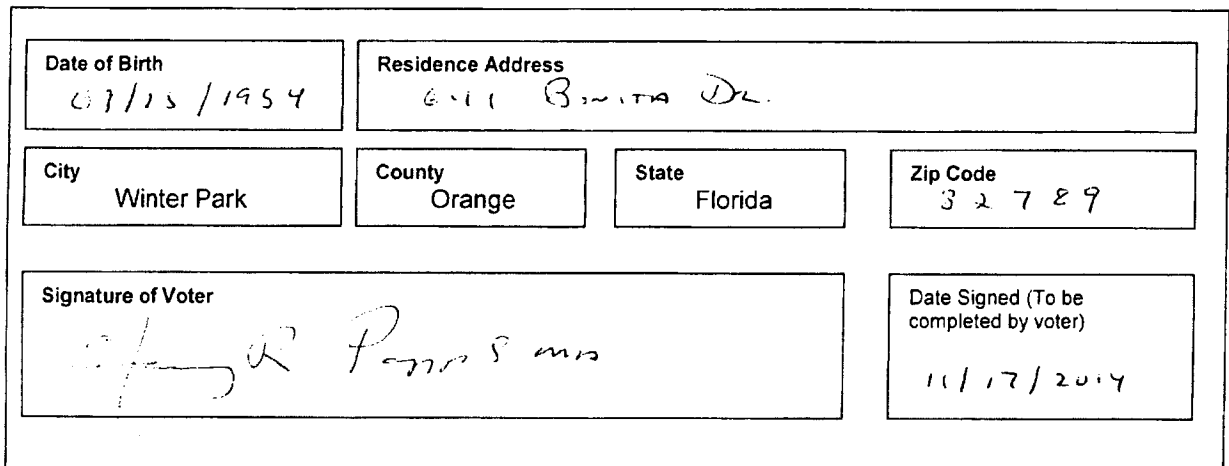 Date of Birth
03/15/1954
Residence Address
641 Bonita Dr.
City
Winter Park
County
Orange
State
Florida
Zip Code
32789
Signature of Voter
R
Date Signed (To be
completed by voter)
11/17/2014